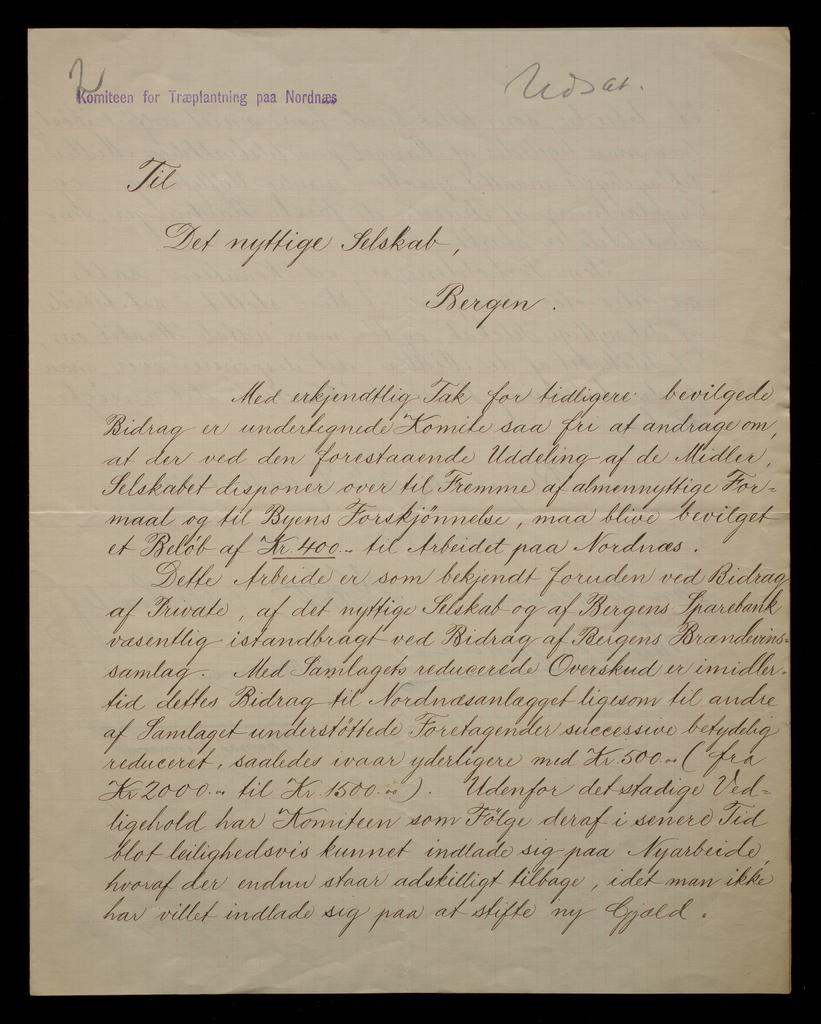 2
Udsat.
Komiteen for Træplantning paa Nordnæs
Til
Det nyttige Selskab,
Bergen.
Med erkjendtlig Tak for tidligere bevilgede
Bidrag er undertegnede Komite saa fri at andrage om,
at der ved den forestaaende Uddeling af de Midler,
Selskabet disponer over til Fremme af almennyttige For=
maal og til Byens Forskjønnelse, maa blive bevilget
et Beløb af Kr. 400.- til Arbeidet paa Nordnæs.
Dette Arbeide er som bekjendt foruden ved Bidrag
af Private, af det nyttige Selskab og af Bergens Sparebank
væsentlig istandbragt ved Bidrag af Bergens Brændevins=
samlag. Med Samlagets reducerede Overskud er imidler=
tid dettes Bidrag til Nordnæsanlægget ligesom til andre
af Samlaget understöttede Foretagender successive betydelig
reduceret, saaledes ivaar yderligere med Kr. 500.- (fra
Kr 2000.- til Kr. 1500.-). Udenfor det stadige Ved=
ligehold har Komiteen som Fölge deraf i senere Tid
blot leilighedsvis kunnet indlade sig paa Nyarbeide,
hvoraf der endnu staar adskilligt tilbage, idet man ikke
har villet indlade sig paa at stifte ny Gjæld.